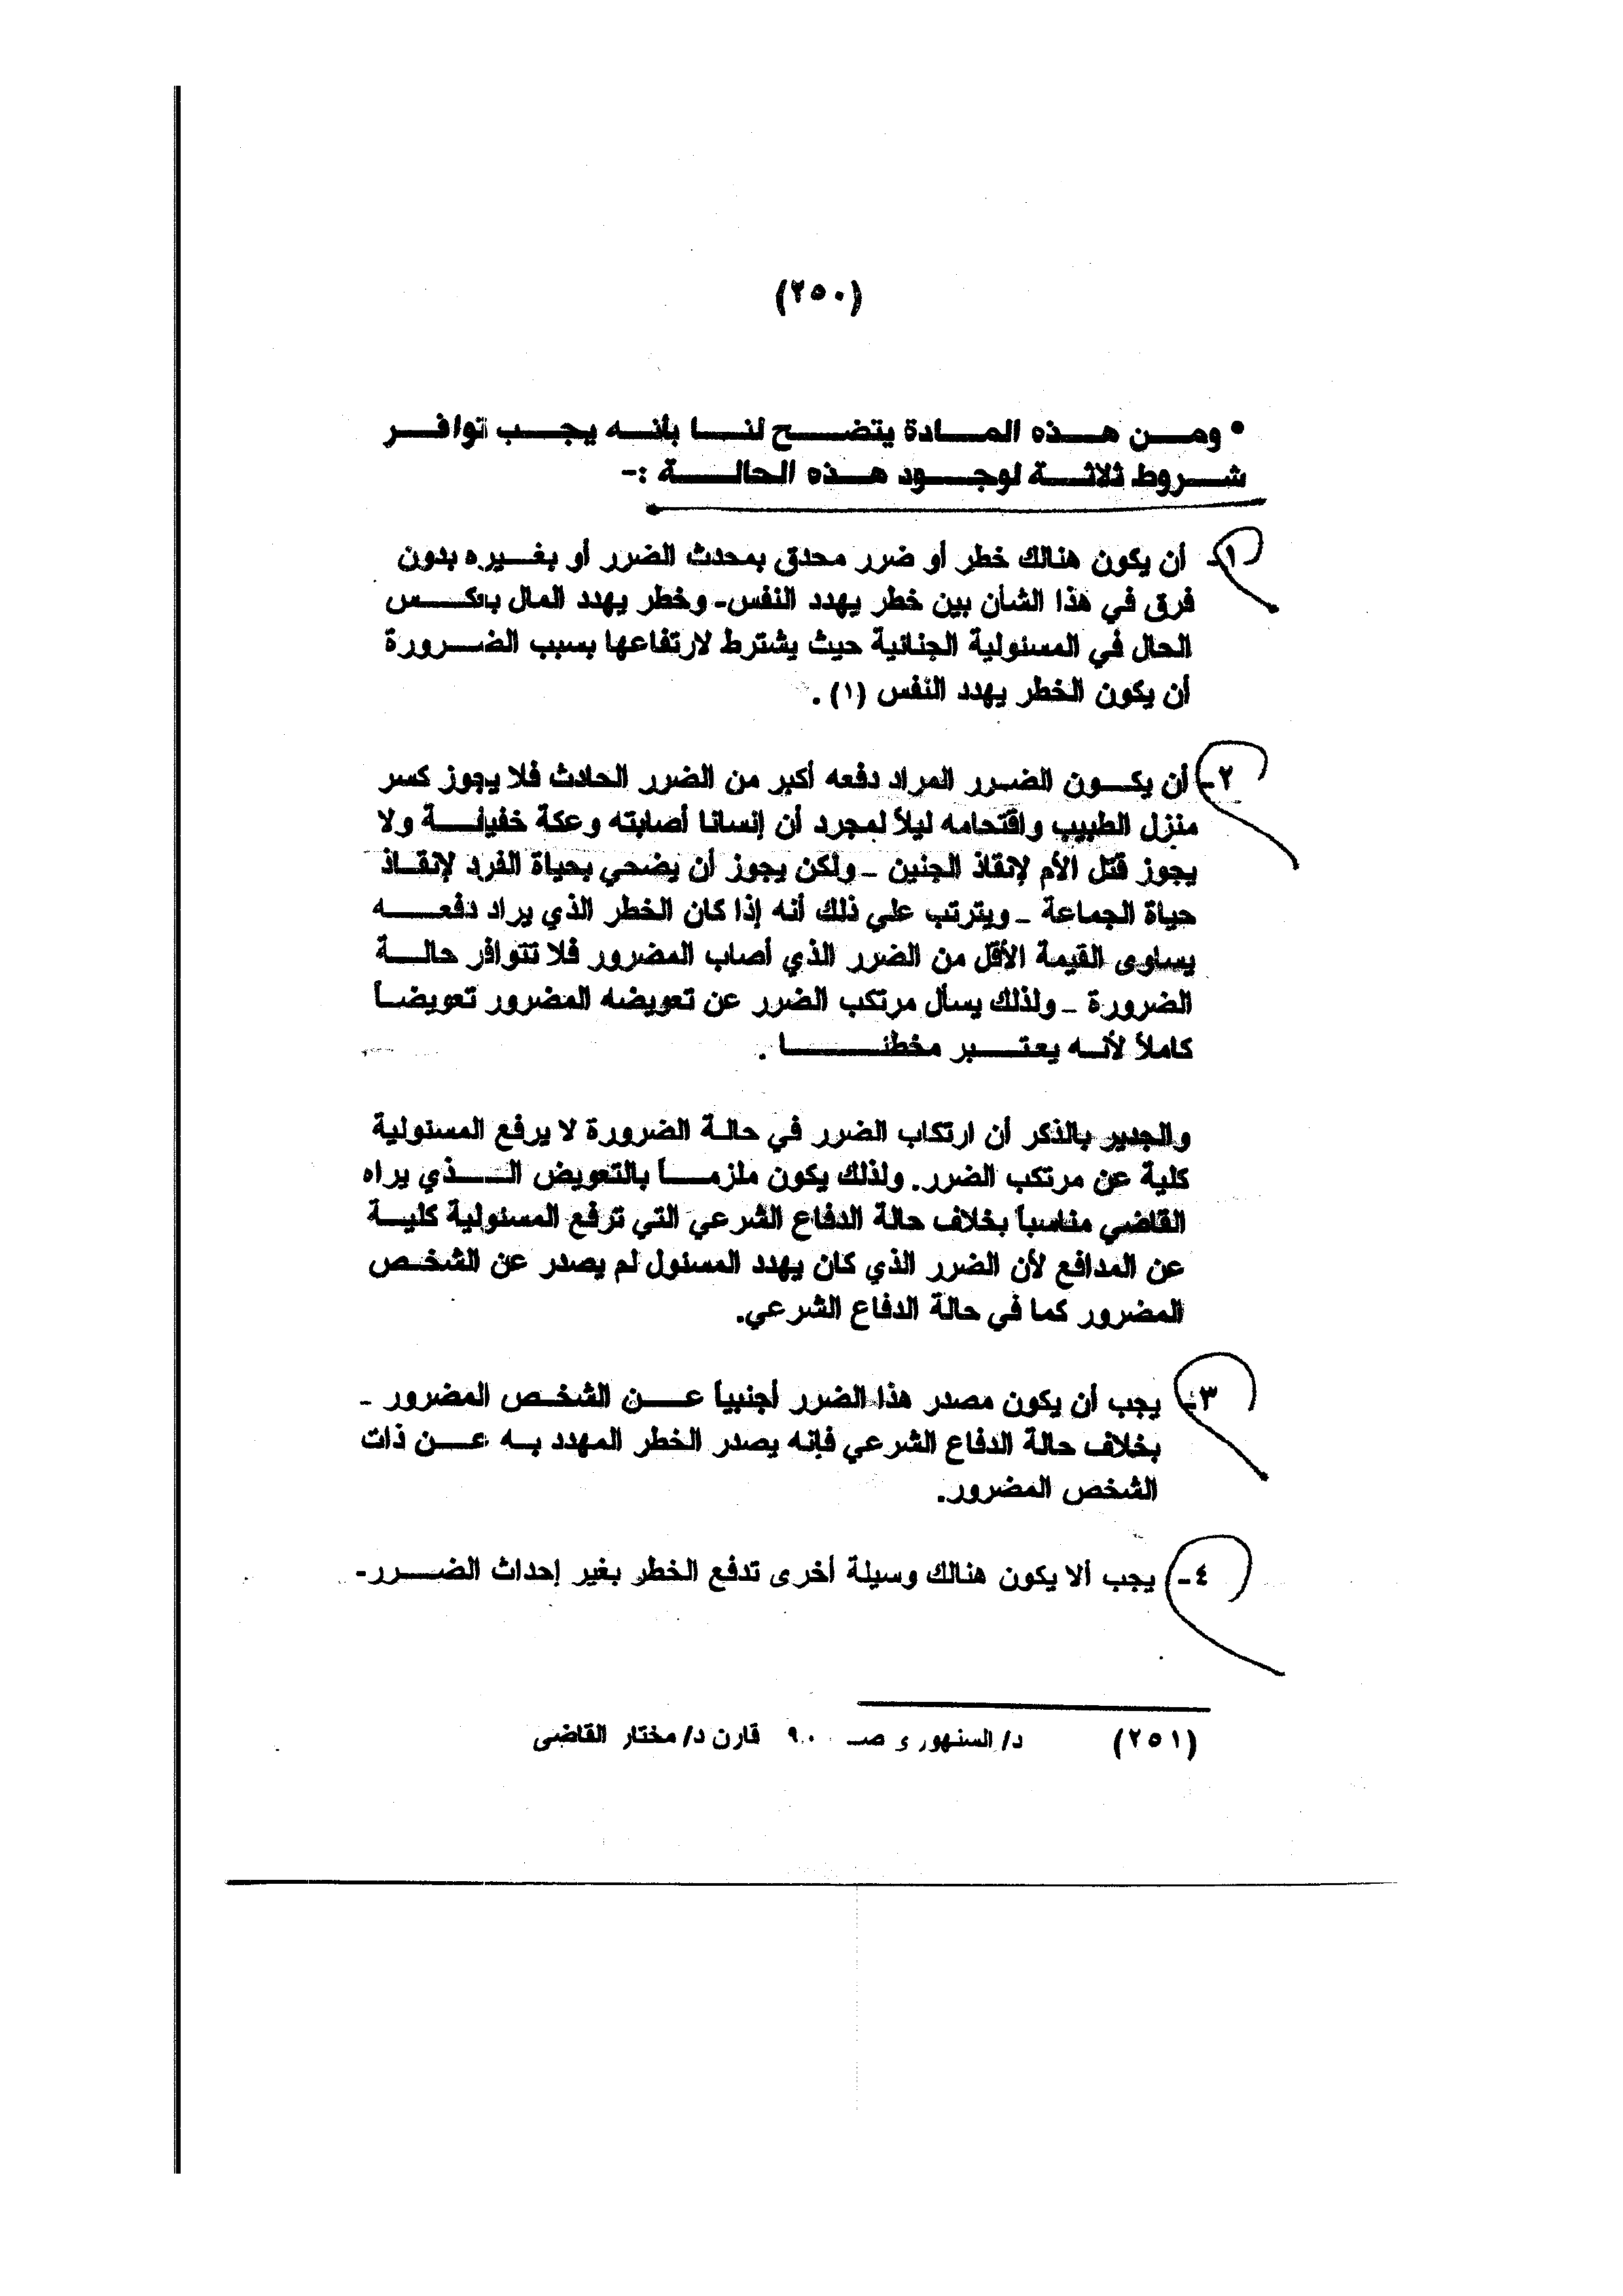 (٢٥٠)
• ومن هذه المادة يتضح لنا بأنه يجب توافر
شروط ثلاثة لوجود هذه الحالة :-
١- أن يكون هنالك خطر أو ضرر محدق بمحدث الضرر أو بغيره بدون
فرق في هذا الشأن بين خطر يهدد النفس- وخطر يهدد المال بعكس
الحال في المسئولية الجنائية حيث يشترط لارتفاعها بسبب الضرورة
أن يكون الخطر يهدد النفس (١) .
٢- أن يكون الضرر المراد دفعه أكبر من الضرر الحادث فلا يجوز كسر
منزل الطبيب واقتحامه ليلاً لمجرد أن إنسانا أصابته وعكة خفيفة ولا
يجوز قتل الأم لإنقاذ الجنين - ولكن يجوز أن يضحي بحياة الفرد لإنقاذ
حياة الجماعة - ويترتب علي ذلك أنه إذا كان الخطر الذي يراد دفعه
يساوى القيمة الأقل من الضرر الذي أصاب المضرور فلا تتوافر حالة
الضرورة - ولذلك يسأل مرتكب الضرر عن تعويضه المضرور تعويضاً
كاملاً لأنه يعتبر مخطئا .
والجدير بالذكر أن ارتكاب الضرر في حالة الضرورة لا يرفع المسئولية
كلية عن مرتكب الضرر. ولذلك يكون ملزماً بالتعويض الذي يراه
القاضي مناسباً بخلاف حالة الدفاع الشرعي التي ترفع المسئولية كلية
عن المدافع لأن الضرر الذي كان يهدد المسئول لم يصدر عن الشخص
المضرور كما في حالة الدفاع الشرعي.
٣- يجب أن يكون مصدر هذا الضرر أجنبياً عن الشخص المضرور -
بخلاف حالة الدفاع الشرعي فإنه يصدر الخطر المهدد به عن ذات
الشخص المضرور.
٤- يجب ألا يكون هنالك وسيلة أخرى تدفع الخطر بغير إحداث الضرر-
(٢٥١) د/ السنهوري صـ ٩٠٠ قارن د/ مختار القاضى